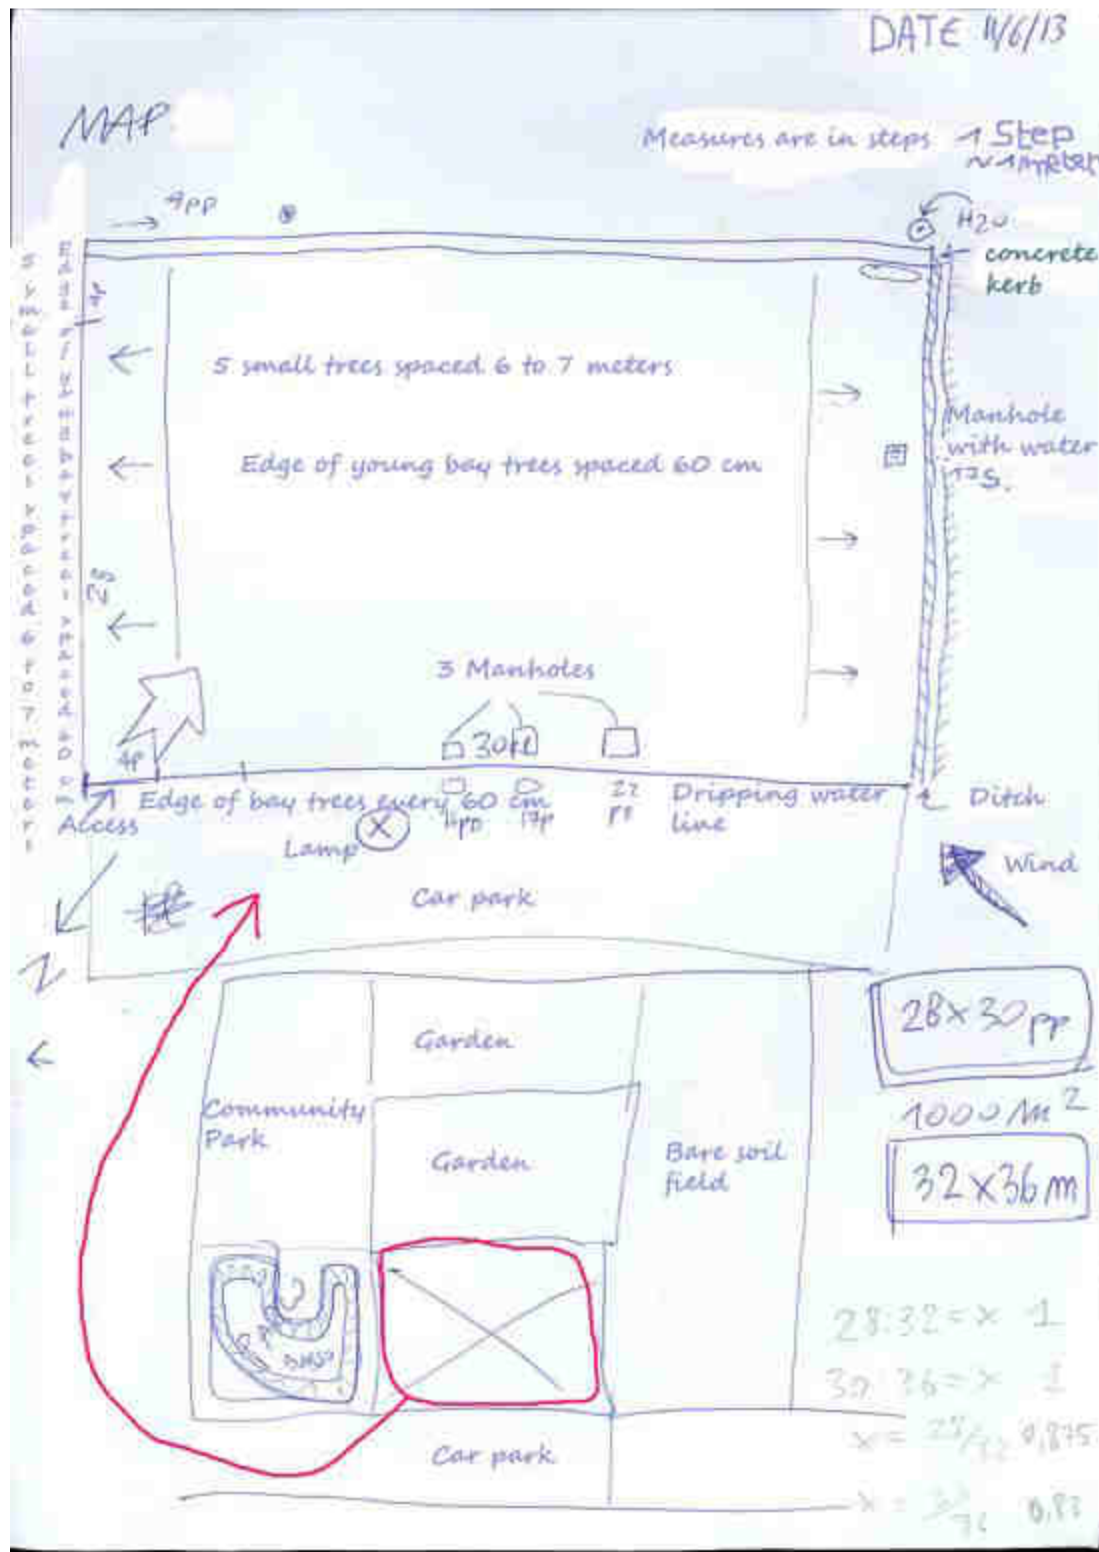 DATE 11/6/13
MAP
Measures are in steps 1 Step
~1 meter
4pp
H2O
concrete
kerb
5 small trees spaced 6 to 7 meters
Edge of young bay trees spaced 60 cm
4p
5 small trees spaced 6 to 7 meters
Edge of young bay trees spaced 60 cm
Manhole
with water
17S.
3 Manholes
30
4p
Edge of bay trees every 60 cm
11pp
17p
22
pp
Dripping water
line
Ditch
Access
Lamp
Wind
Car park
N
28x30pp
Garden
Community
Park
1000 m2
Garden
Bare soil
field
32x36m
28:32=x 1
30:36=x 1
x = 28/32 0,875
x = 30/36 0,83
Car park